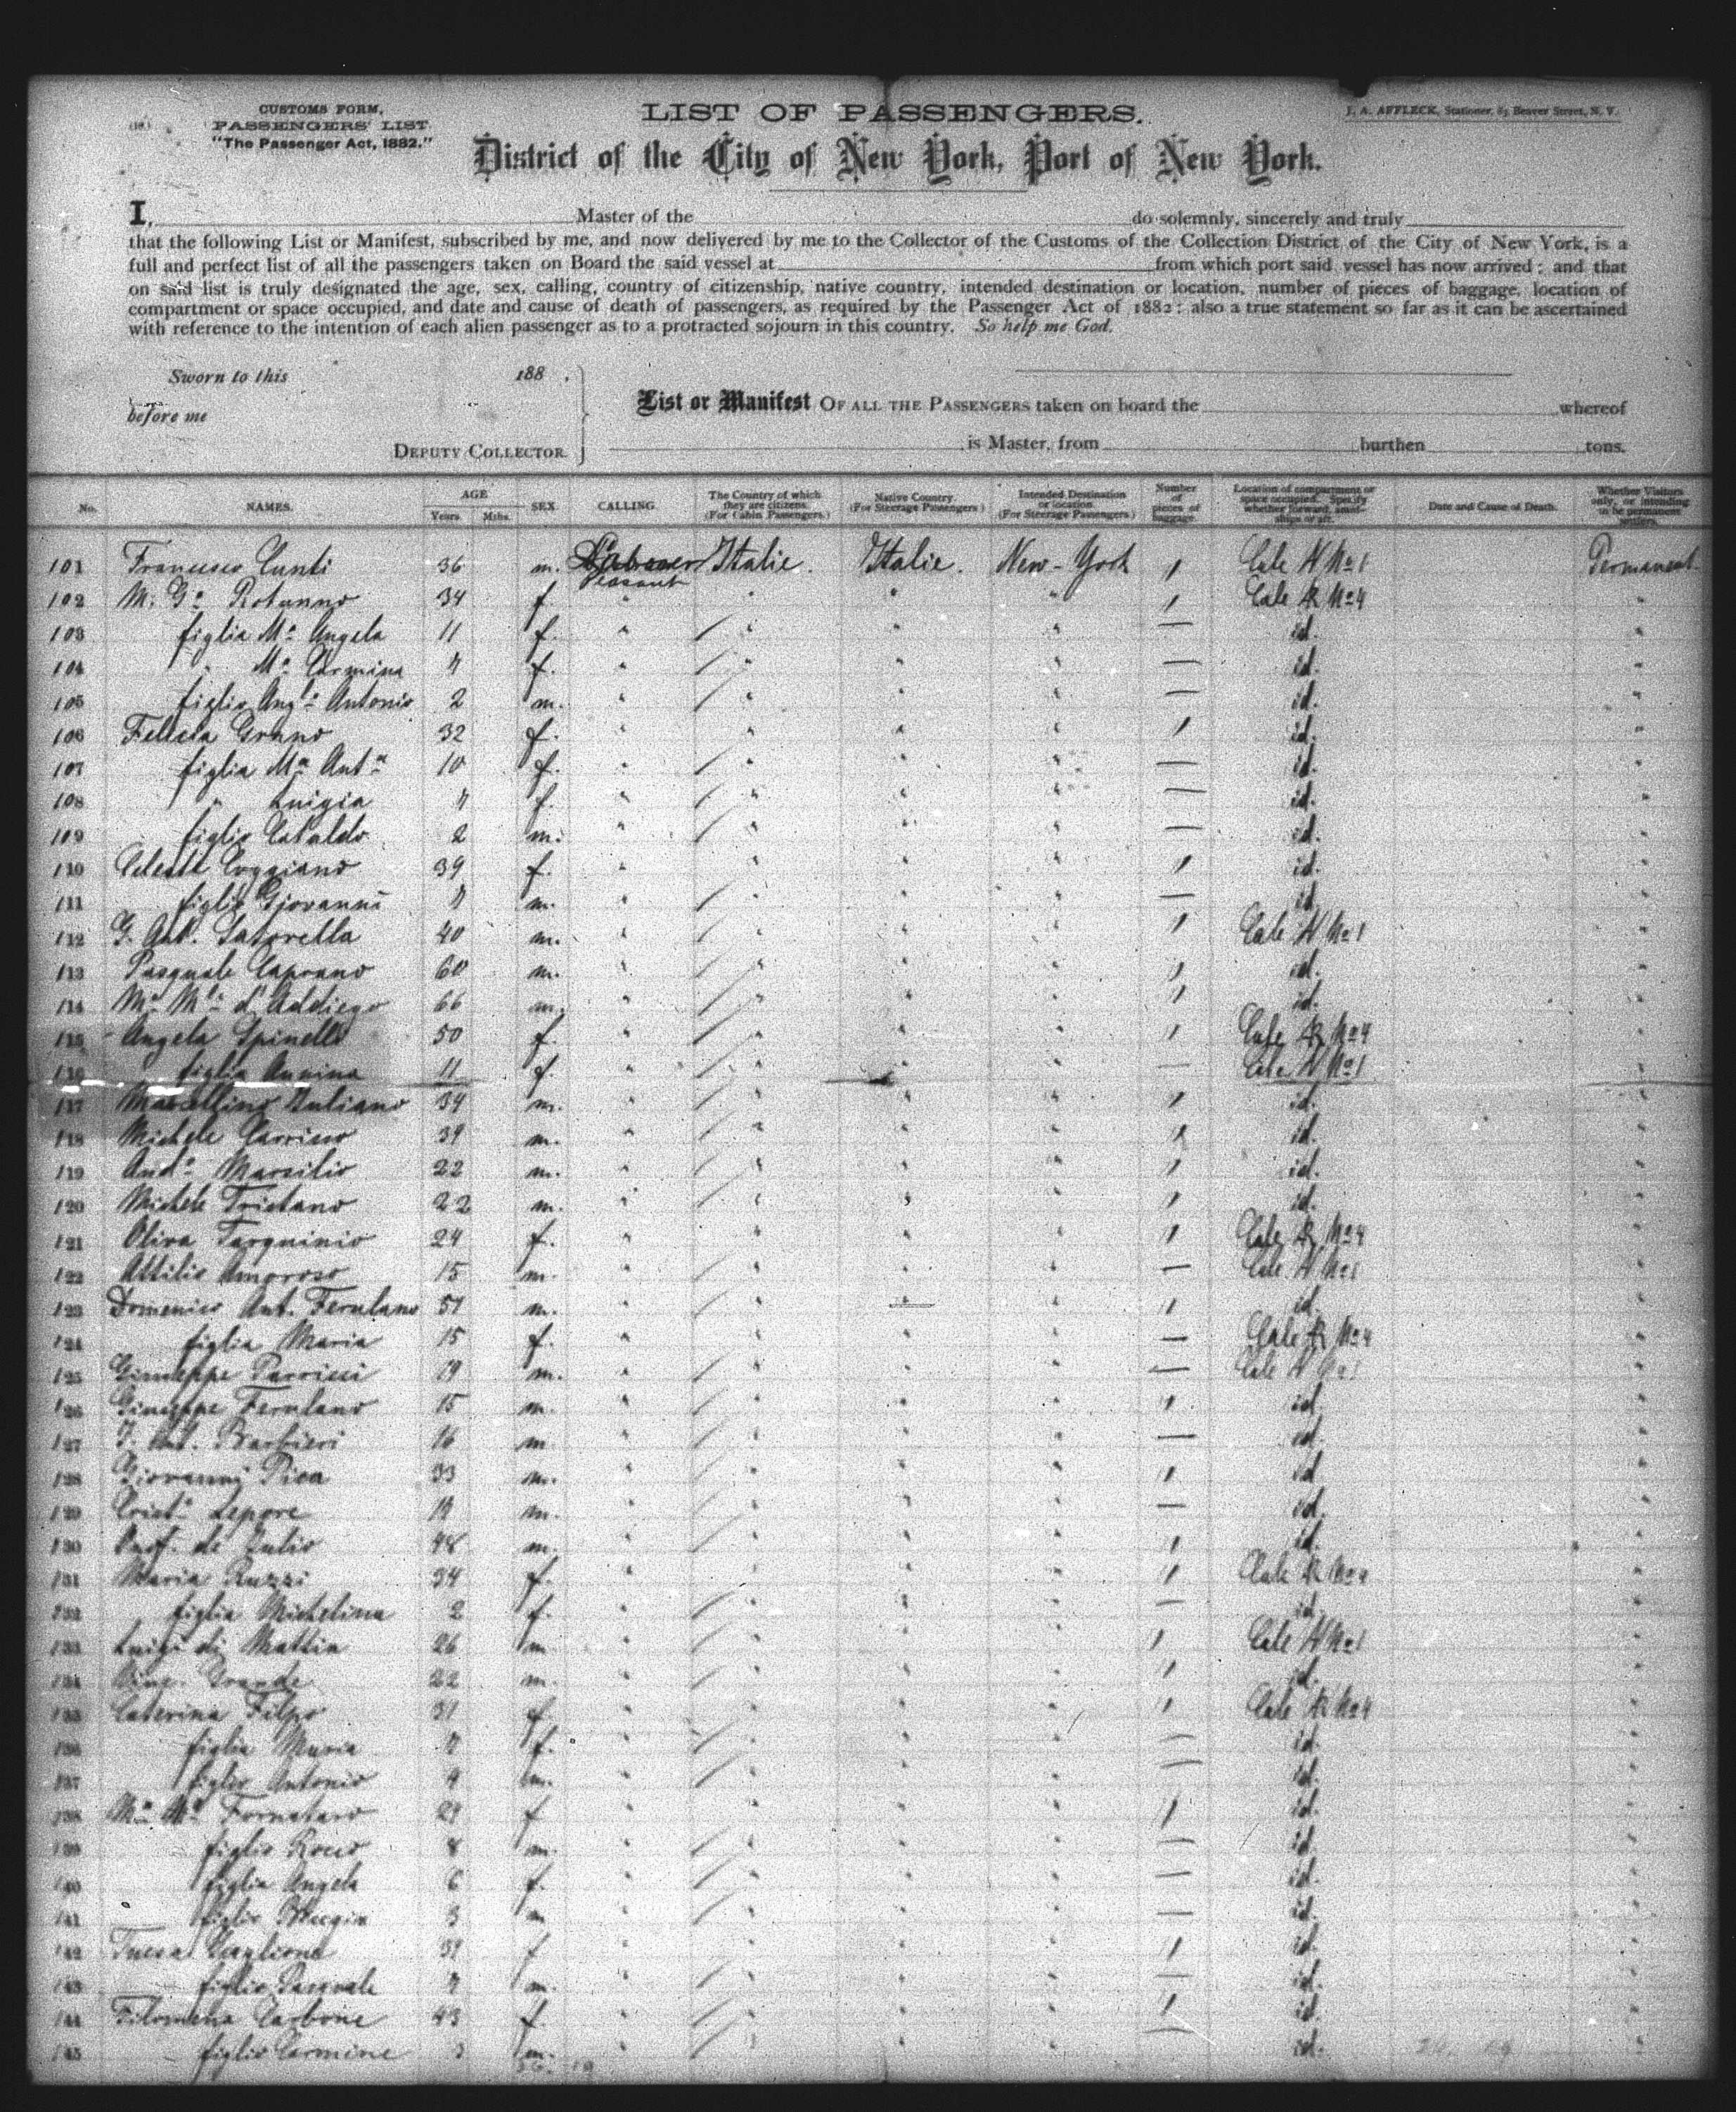 (10.)
CUSTOMS FORM,
PASSENGERS' LIST
"The Passenger Act, 1882."
LIST OF PASSENGERS.
J. A. AFFLECK, Stationer, 83 Beaver Street, N. Y.
District of the City of New York, Port of New York.
I, Master of the do solemnly, sincerely and truly
that the following List or Manifest, subscribed by me, and now delivered by me to the Collector of the Customs of the Collection District of the City of New York, is a
full and perfect list of all the passengers taken on Board the said vessel at from which port said vessel has now arrived; and that
on said list is truly designated the age, sex, calling, country of citizenship, native country, intended destination or location, number of pieces of baggage, location of
compartment or space occupied, and date and cause of death of passengers, as required by the Passenger Act of 1882; also a true statement so far as it can be ascertained
with reference to the intention of each alien passenger as to a protracted sojourn in this country. So help me God.
Sworn to this 188 .
before me
DEPUTY COLLECTOR.
List or Manifest OF ALL THE PASSENGERS taken on board the whereof
is Master, from burthen tons.
No. NAMES. AGE Years. Mths. SEX. CALLING. The Country of which they are citizens. (For Cabin Passengers.) Native Country. (For Steerage Passengers) Intended Destination or location. (For Steerage Passengers) Number of pieces of baggage Location of compartment or space occupied. Specify whether forward, amidships or aft. Date and Cause of Death. Whether Visitors only, or intending to be permanent settlers.
101 Francesco Cunti 36 m. Peasant Italie. Italie. New-York 1 Cale N No 1 Permanent
102 M. Ga Rotunno 34 f. " " " " 1 Cale AR No 4 "
103 figlia Ma Angela 11 f. " " " " — id. "
104 " Ma Carmina 7 f. " " " " — id. "
105 figlio Anglo Antonio 2 m. " " " " — id. "
106 Felicia Grano 32 f. " " " " 1 id. "
107 figlia Ma Anta 10 f. " " " " — id. "
108 " Luigia 7 f. " " " " — id. "
109 figlio Cataldo 2 m. " " " " — id. "
110 Celeste Coggiano 39 f. " " " " 1 id. "
111 figlio Giovanni 7 m. " " " " — id. "
112 G. Ant. Satorella 40 m. " " " " 1 Cale N No 1 "
113 Pasquale Caprano 60 m. " " " " 1 id. "
114 d'Addiego 66 m. " " " " 1 id. "
115 Angela Spinelli 50 f. " " " " 1 Cale AR No 4 "
116 figlia Annina 11 f. " " " " — Cale N No 1 "
117 Marcellino Juliano 34 m. " " " " 1 id. "
118 Michele Carrino 39 m. " " " " 1 id. "
119 Anda Marsilio 22 m. " " " " 1 id. "
120 Michele Tristano 22 m. " " " " 1 id. "
121 Oliva Tarquinio 24 f. " " " " 1 Cale AR No 4 "
122 Attilio Amoroso 15 m. " " " " — Cale N No 1 "
123 Domenico Ant. Ferulano 57 m. " " " " 1 id. "
124 figlia Maria 15 f. " " " " — Cale AR No 4 "
125 Giuseppe Parrisi 19 m. " " " " — Cale N No 1 "
126 Giuseppe Ferulano 15 m. " " " " 1 id. "
127 Ant. Barbieri 16 m. " " " " — id. "
128 Giovanni Pica 33 m. " " " " 1 id. "
129 Lepore 19 m. " " " " — id. "
130 de Julio 48 m. " " " " 1 id. "
131 Maria Ruzzi 34 f. " " " " 1 Cale AR No 4 "
132 figlia Michelina 2 f. " " " " — id. "
133 Luigi di Mattia 26 m. " " " " 1 Cale N No 1 "
134 22 m. " " " " 1 id. "
135 Caterina Filpo 31 f. " " " " 1 Cale AR No 4 "
136 figlia Maria 7 f. " " " " — id. "
137 figlio Antonio 4 m. " " " " — id. "
138 Fornataro 29 f " " " " 1 id. "
139 figlio Rocco 8 m. " " " " — id. "
140 figlia Angela 6 f. " " " " — id. "
141 figlio 3 m " " " " — id. "
142 Gaglione 39 f " " " " 1 id. "
143 figlio Pasquale 7 m. " " " " — id. "
144 Filomena Carbone 43 f. " " " " 1 id. "
145 figlio Carmine 3 m. " " " " — id. "